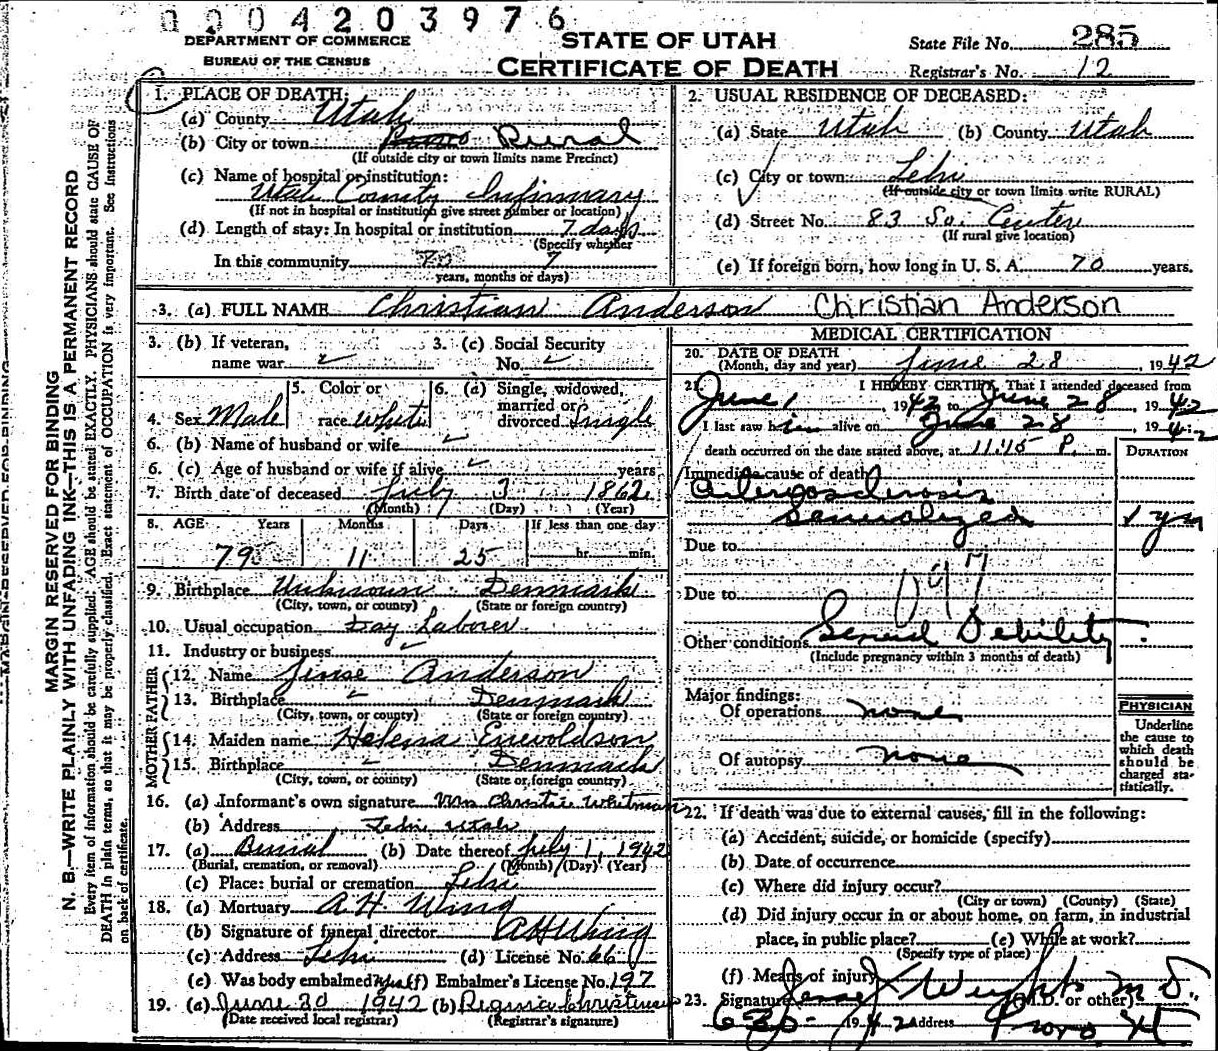 0004203976
DEPARTMENT OF COMMERCE
BUREAU OF THE CENSUS
STATE OF UTAH
CERTIFICATE OF DEATH
State File No. 285
Registrar's No. 12
MARGIN RESERVED FOR BINDING
N. B.—WRITE PLAINLY WITH UNFADING INK—THIS IS A PERMANENT RECORD
Every item of information should be carefully supplied. AGE should be stated EXACTLY. PHYSICIANS should state CAUSE OF
DEATH in plain terms, so that it may be properly classified. Exact statement of OCCUPATION is very important. See Instructions
on back of certificate.
1. PLACE OF DEATH:
(a) County Utah
(b) City or town Provo Rural
(If outside city or town limits name Precinct)
(c) Name of hospital or institution:
Utah County Infirmary
(If not in hospital or institution give street number or location)
(d) Length of stay: In hospital or institution 7 days
(Specify whether
In this community 70 7
years, months or days)
2. USUAL RESIDENCE OF DECEASED:
(a) State Utah (b) County Utah
(c) City or town: Lehi
(If outside city or town limits write RURAL)
(d) Street No. 83 So. Center
(If rural give location)
(e) If foreign born, how long in U. S. A. 70 years.
3. (a) FULL NAME Christian Anderson Christian Anderson
3. (b) If veteran, name war
3. (c) Social Security No.
4. Sex Male
5. Color or race white
6. (a) Single, widowed, married or divorced Single
6. (b) Name of husband or wife
6. (c) Age of husband or wife if alive years
7. Birth date of deceased July 3 1862
(Month) (Day) (Year)
8. AGE Years Months Days If less than one day
79 11 25 hr. min.
9. Birthplace Unknown Denmark
(City, town, or county) (State or foreign country)
10. Usual occupation Day Laborer
11. Industry or business
FATHER
12. Name Jense Anderson
13. Birthplace Denmark
(City, town, or county) (State or foreign country)
MOTHER
14. Maiden name Helena Enevoldson
15. Birthplace Denmark
(City, town, or county) (State or foreign country)
16. (a) Informant's own signature Mrs Christie Whitman
(b) Address Lehi Utah
17. (a) Burial (b) Date thereof July 1, 1942
(Burial, cremation, or removal) (Month) (Day) (Year)
(c) Place: burial or cremation Lehi
18. (a) Mortuary A. H. Wing
(b) Signature of funeral director AH Wing
(c) Address Lehi (d) License No. 66
(e) Was body embalmed? yes (f) Embalmer's License No. 197
19. (a) June 30 1942 (b) Regina Christensen
(Date received local registrar) (Registrar's signature)
MEDICAL CERTIFICATION
20. DATE OF DEATH
(Month, day and year) June 28 1942
21. I HEREBY CERTIFY, That I attended deceased from
June 1, 1942 to June 28, 1942
I last saw him alive on June 28, 1942
death occurred on the date stated above, at 11:45 P. m.
DURATION
Immediate cause of death
Arteriosclerosis
Generalized 1 yr
Due to
Due to
097
Other conditions General Debility.
(Include pregnancy within 3 months of death)
Major findings:
Of operations none
Of autopsy none
PHYSICIAN
Underline
the cause to
which death
should be
charged sta-
tistically.
22. If death was due to external causes, fill in the following:
(a) Accident, suicide, or homicide (specify)
(b) Date of occurrence
(c) Where did injury occur?
(City or town) (County) (State)
(d) Did injury occur in or about home, on farm, in industrial
place, in public place? (e) While at work?
(Specify type of place)
(f) Means of injury
23. Signature M.D.
(M.D. or other)
6 30 1942 Address Provo Ut.